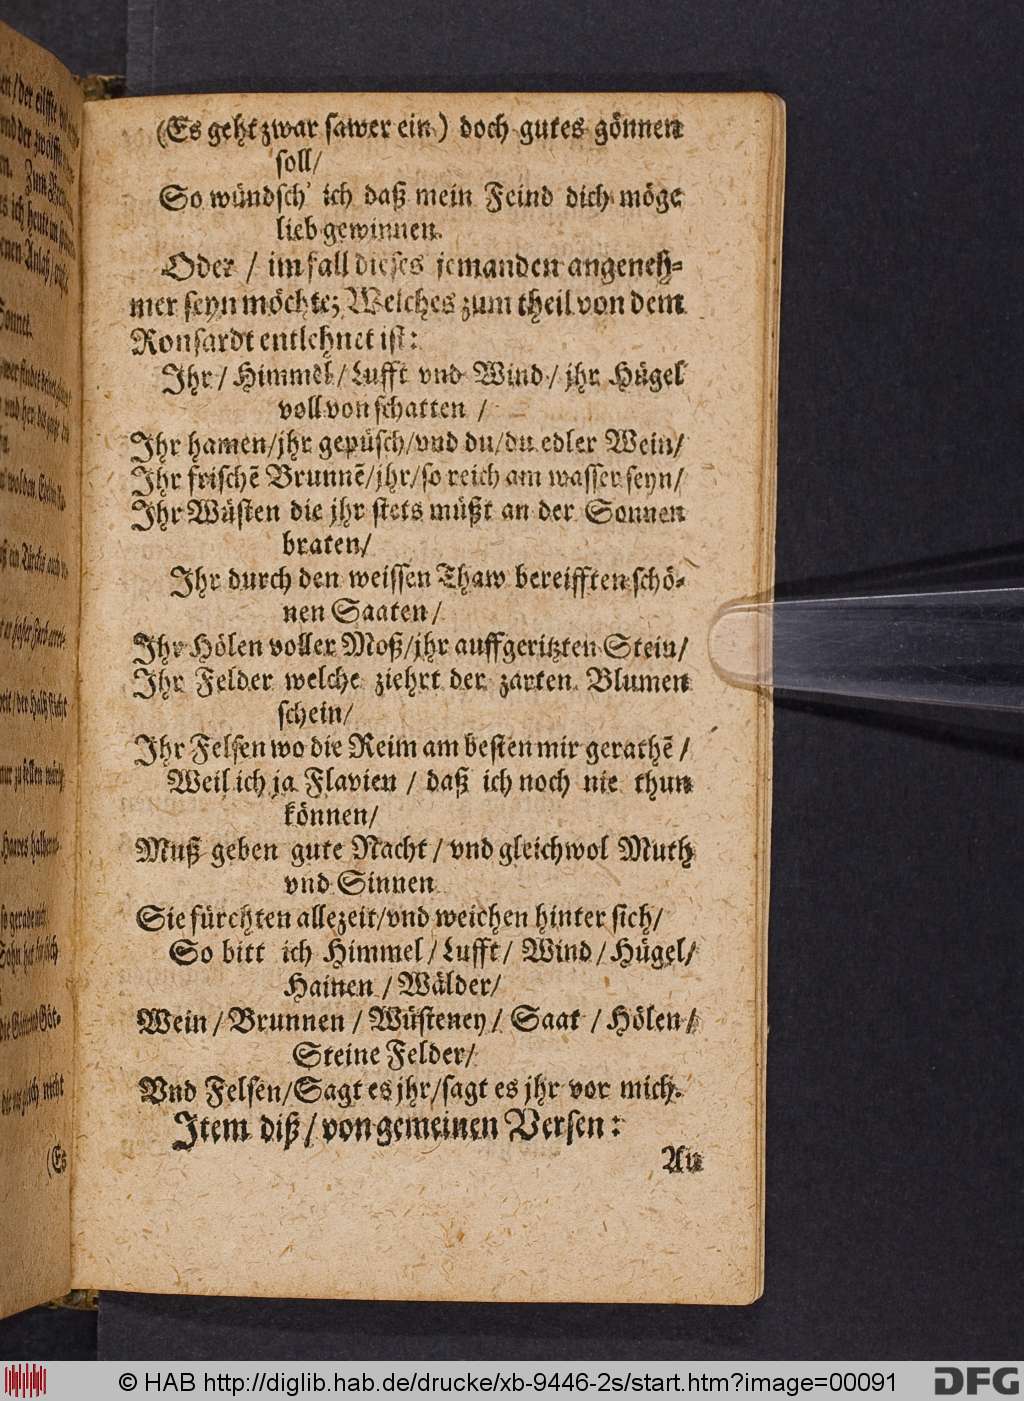 (Es geht zwar sawer ein) doch gutes gönnen
soll/
So wündsch' ich daß mein Feind dich möge
lieb gewinnen.
Oder / im fall dieses jemanden angeneh-
mer seyn möchte; Welches zum theil von dem
Ronsardt entlehnet ist:
Ihr / Himmel / Lufft vnd Wind / jhr Hügel
voll von schatten /
Ihr hainen/jhr gepüsch/vnd du/du edler Wein/
Ihr frischẽ Brunnẽ/jhr/so reich am wasser seyn/
Ihr Wüsten die jhr stets müßt an der Sonnen
braten/
Ihr durch den weissen Thaw bereifften schö-
nen Saaten/
Ihr Hölen voller Moß/jhr auffgeritzten Stein/
Ihr Felder welche ziehrt der zarten Blumen
schein/
Ihr Felsen wo die Reim am besten mir gerathẽ /
Weil ich ja Flavien / daß ich noch nie thun
können/
Muß geben gute Nacht / vnd gleichwol Muth
vnd Sinnen
Sie fürchten allezeit/vnd weichen hinter sich/
So bitt ich Himmel / Lufft / Wind / Hügel/
Hainen / Wälder/
Wein / Brunnen / Wüsteney / Saat / Hölen /
Steine Felder/
Vnd Felsen/Sagt es jhr/sagt es jhr vor mich.
Item diß / von gemeinen Versen:
An
(Es
© HAB http://diglib.hab.de/drucke/xb-9446-2s/start.htm?image=00091
DFG